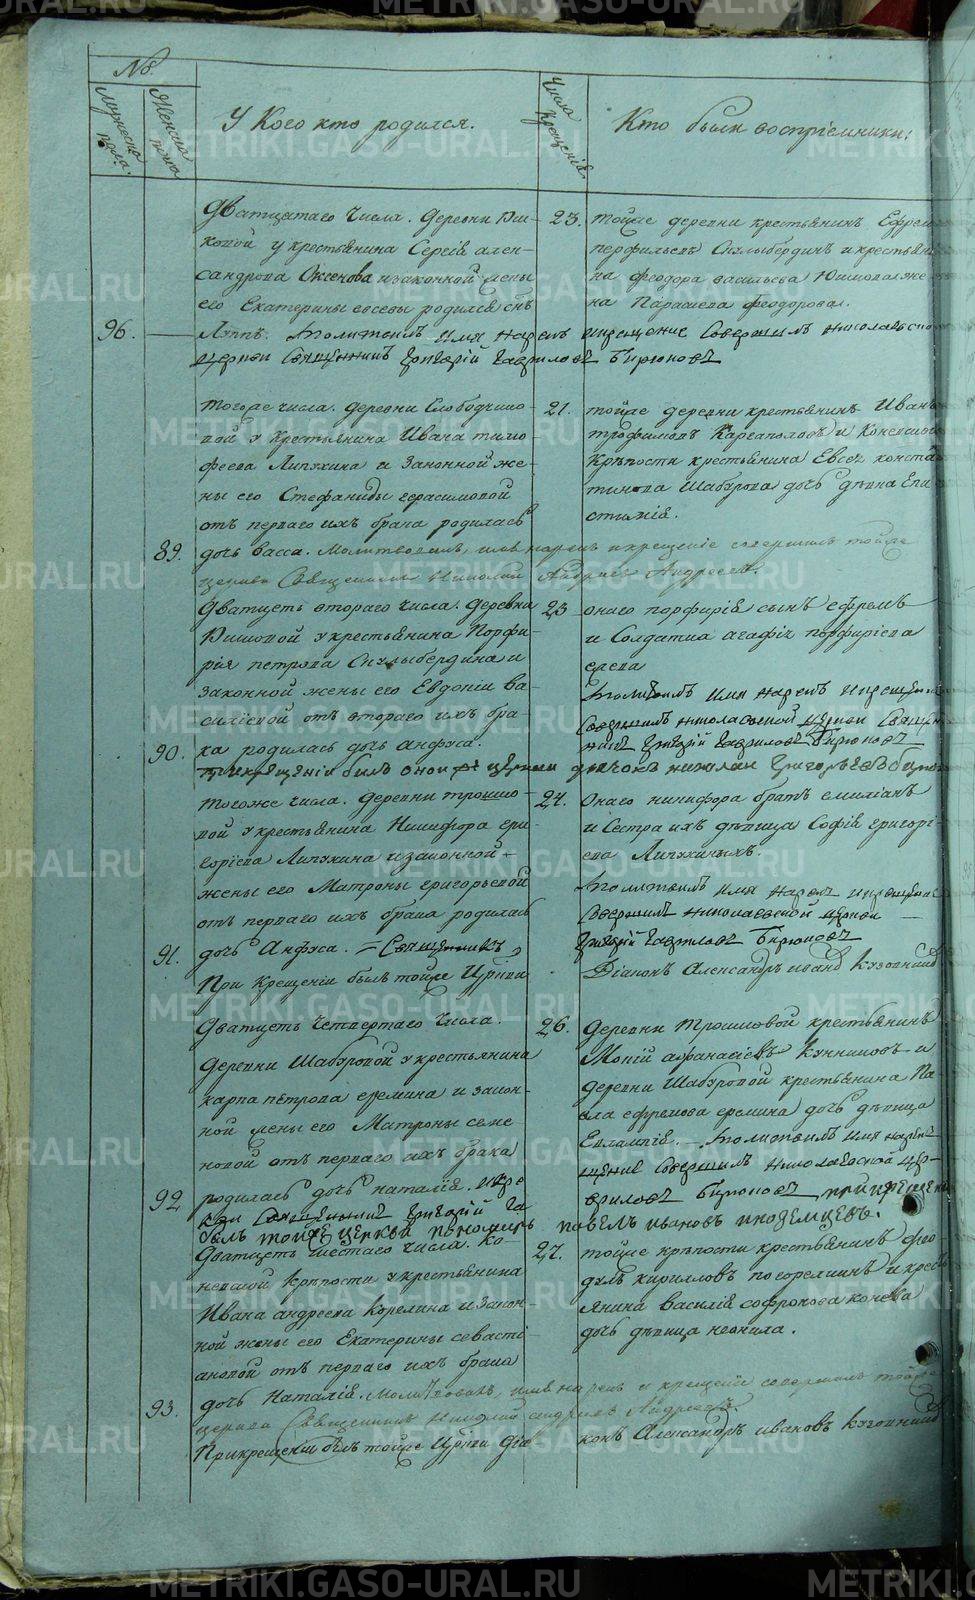 №
Мужеска пола.
Женска пола
У Кого кто родился.
Числа крещенія
Кто были воспріемники:
Дватцатаго числа. Деревни
ковой у крестьянина Сергія алек-
сандрова Оженова изаконной жены
его Екатерины родился сынъ
96.
Молитвовалъ имя нарекъ икрещение совершилъ николаевской
церкви Священникъ Григорій Гавриловъ Бирюковъ
23. тойже деревни крестьянинъ Ефремъ
перфильевъ и крестьяни
на феодора васильева
на Парасиева феодорова.
тогоже числа. деревни Слободчико-
вой у Крестьянина Ивана тимо-
феева Липухина и Законной же-
ны его Стефаниды герасимовой
отъ перваго ихъ брака родилась
89. дочь васса. Молитвовалъ, имя нарекъ икрещеніе совершилъ тойже
церкви Священникъ Николай Андреевъ
21. тойже деревни крестьянинъ Иванъ
трофимовъ Карсаполовъ и Коневской
Крѣпости крестьянина Евсея конста
тинова Шабурова дочь дѣвка Епи
стимія.
Дватцеть втораго числа. Деревни
у крестьянина Порфи-
рія петрова и
законной жены его Евдокіи ва-
силіевой отъ втораго ихъ бра-
90. ка родилась дочь анфуса.
прикрещеніи былъ оной церкви дьячокъ николаи Григорьевъ
23 онаго порфирія сынъ ефремъ
и Солдатка агафія порфиріева
Молитвовалъ имя нарекъ икрещение
Совершилъ николаевской церкви Священ
никъ Григорій Гавриловъ Бирюковъ
тогоже числа. деревни трошко-
вой у крестьянина Никифора гри-
горіева Липухина изаконной
жены его Матроны григорьевой
отъ перваго ихъ брака родилась
91. дочь Анфуса. Священникъ
При крещеніи былъ тойже Церкви
24. Онаго никифора братъ емиліанъ
и Сестра ихъ дѣвица Софія григорі-
ева Липухиныхъ.
Молитвовалъ имя нарекъ икрещение
Совершилъ николаевской церкви
Григорій Гавриловъ Бирюковъ
Діаконъ Александръ ивановъ Кузовниковъ
Дватцеть Четвертаго Числа.
Деревни Шабуровой у крестьянина
карпа петрова еремина и закон-
ной жены его Матроны семе-
новой отъ перваго ихъ брака
92 родилась дочь наталія.
кви Священникъ Григорій Га
былъ тойже церкви пономарь павелъ ивановъ иноземцевъ.
26. Деревни Трошковой крестьянинъ
Мокій афанасіевъ и
деревни Шабуровой крестьянина Па-
вла ефремова еремина дочь дѣвица
Евлампія. Молитвовалъ имя нарекъ
щение Совершилъ Николаевской цер-
вриловъ Бирюковъ прикрещении
Дватцеть шестаго числа. Ко-
невской крѣпости у крестьянина
Ивана андреева Корелина и закон-
ной жены его Екатерины севасті-
ановой отъ перваго ихъ брака
93. дочь Наталія. Молитвовалъ, имя нарекъ и крещеніе совершилъ тойже
церкви Священникъ Николай Андреевъ
Прикрещеніи былъ тойже Церкви діа
27. тойже крѣпости крестьянинъ фео
дулъ кирилловъ погорелкинъ и крест
янина василія софронова конева
дочь дѣвица неонила.
конъ Александръ ивановъ Кузовниковъ
METRIKI.GASO-URAL.RU